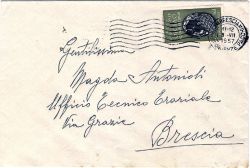 Gentilissima
Magda Antonioli
Ufficio Tecnico Erariale
Via Grazie
Brescia
11-12
1957